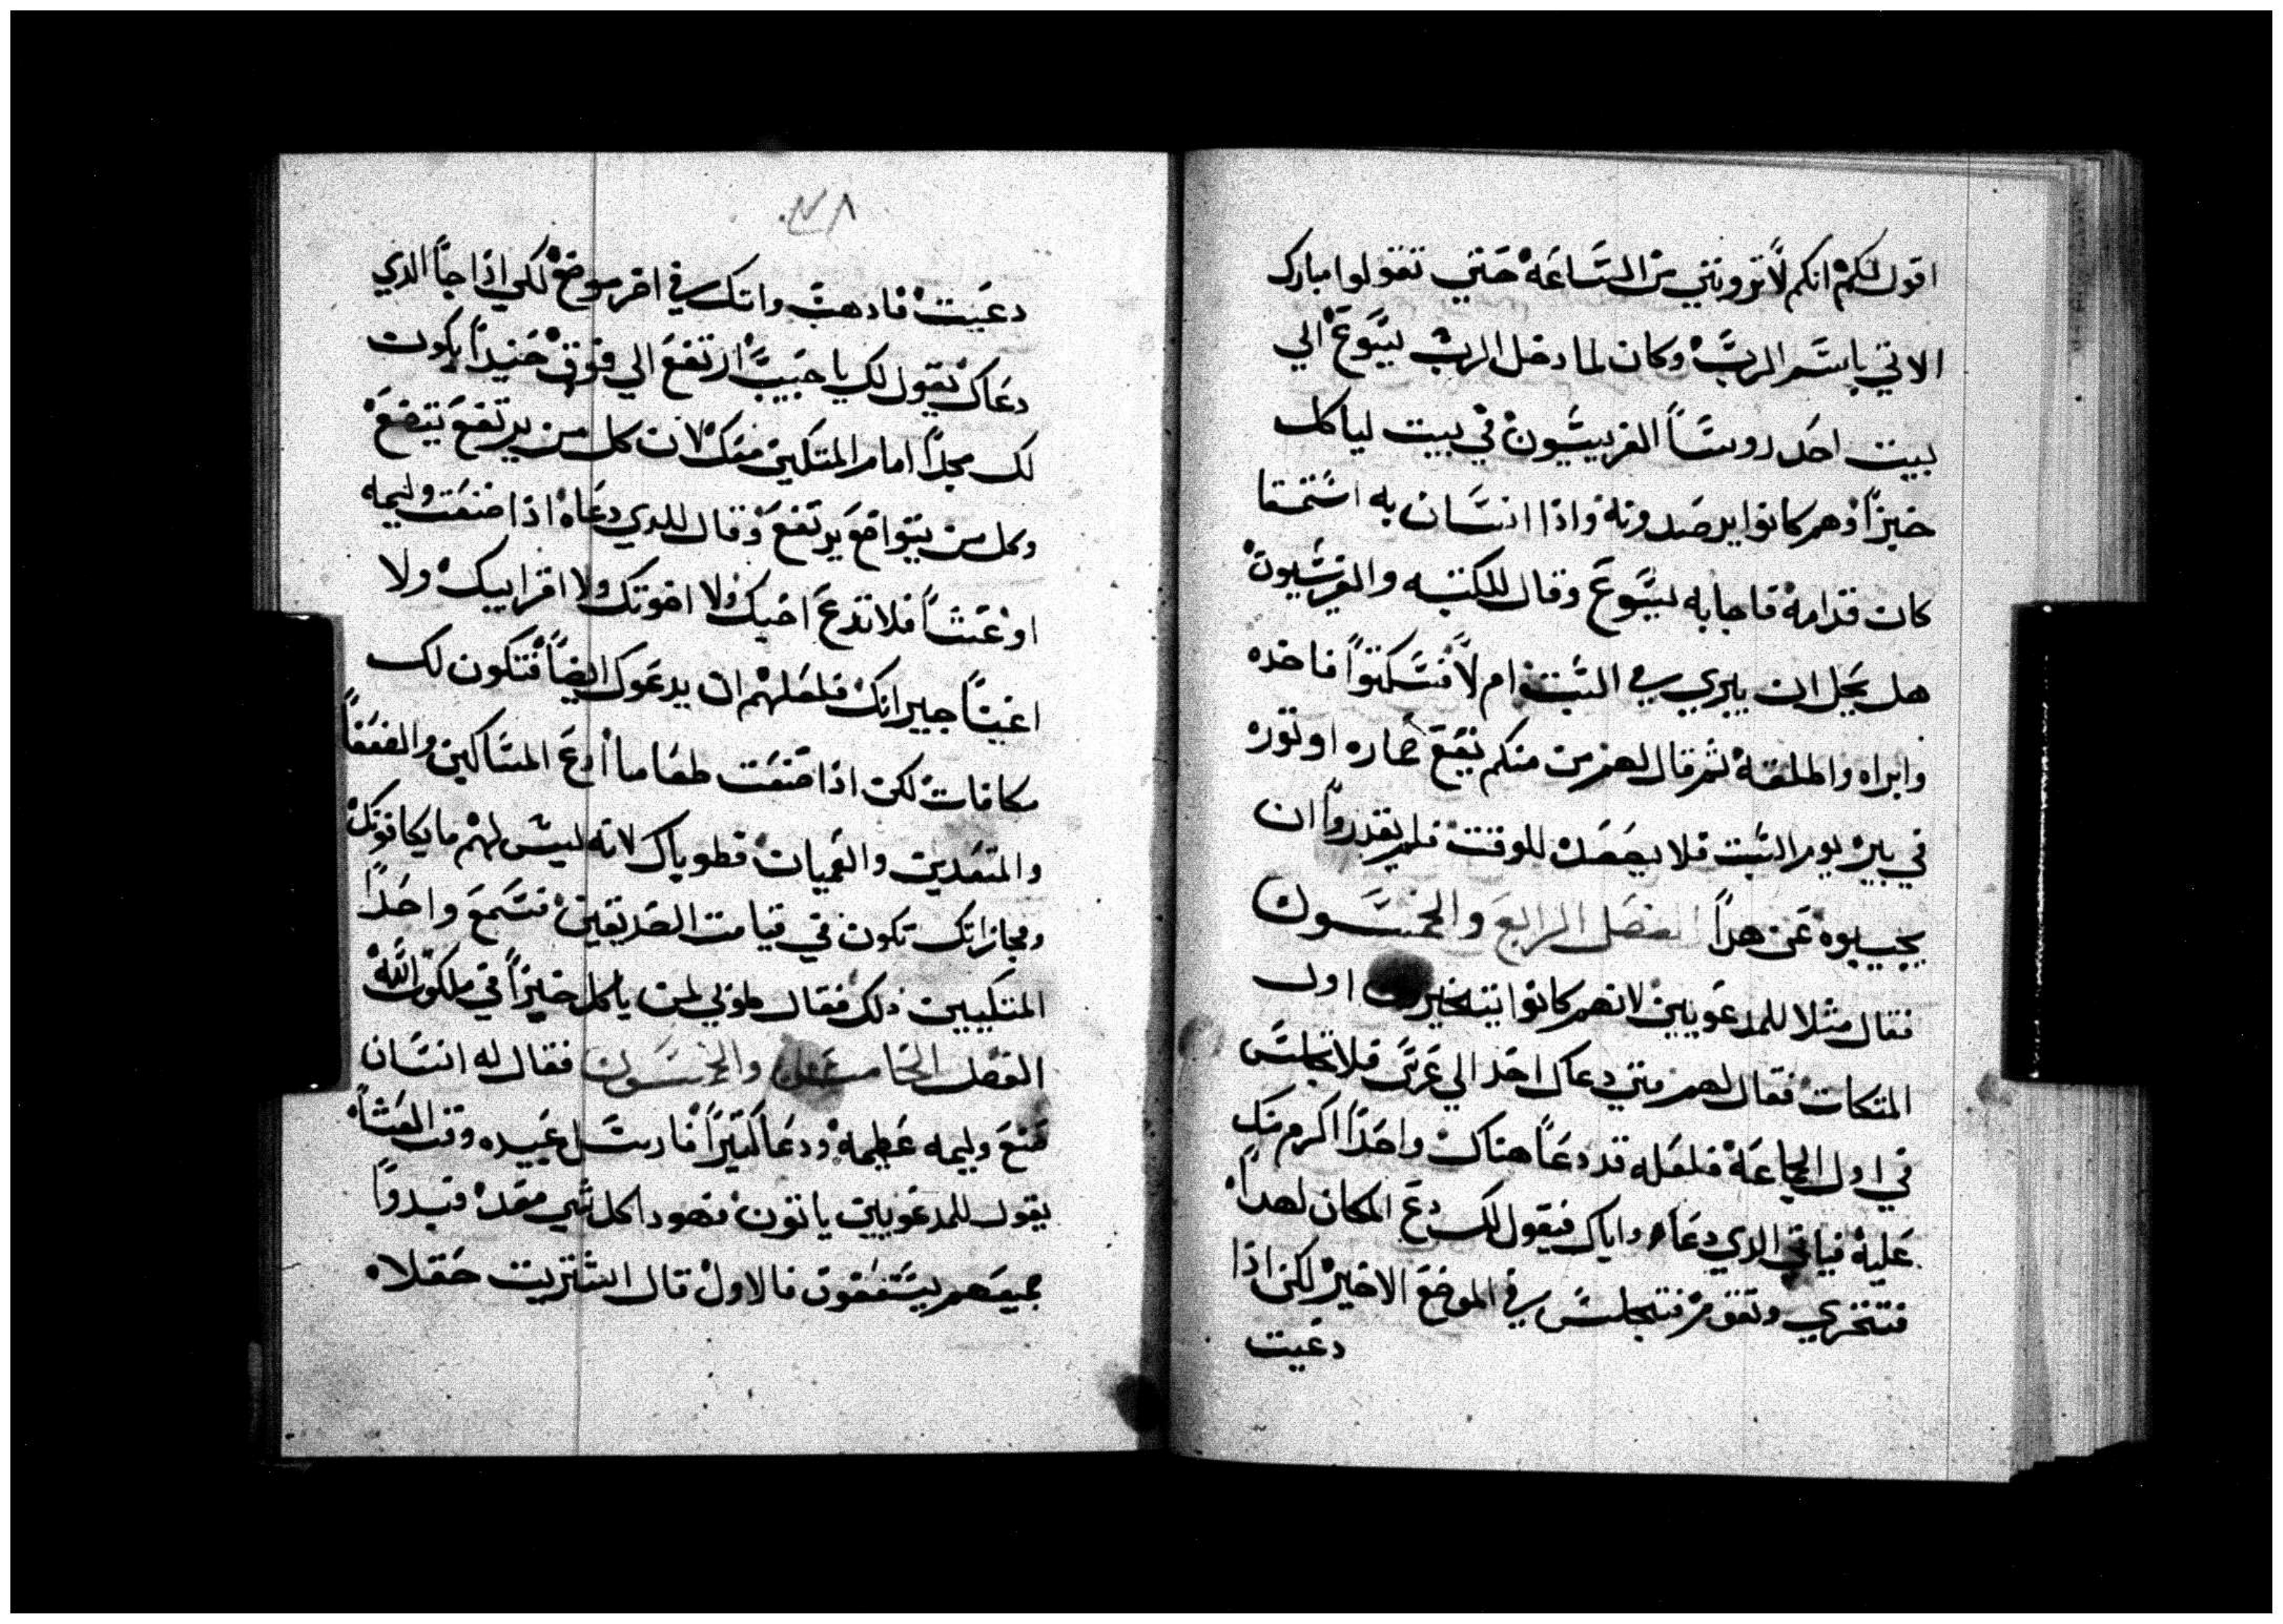 اقول لكم انكم لا ترونني من الساعه حتي تقولوا مبارك
الاتي باسم الرب وكان لما دخل الرب يسوع الي
بيت احد روسا الفريسيون في بيت لياكل
خبزاً وهم كانوا يرصدونه واذا انسان به استسقا
كان قدامه فاجابه يسوع وقال للكتبه والفريسيون
هل يحل ان يبري في السبت ام لا فسكتوا فاخده
وابراه واطلقه ثم قال لهم من منكم يقع حماره او توره
في بير يوم السبت فلا يصعده للوقت فلم يقدروا ان
يجيبوه عن هداً الفصل الرابع والخمسون
فقال مثلا للمدعويين لانهم كانوا يتخيرون اول
المتكات فقال لهم متي دعاك احد الي عرس فلا تجلس
في اول الجماعه فلعله قد دعا هناك واحداً اكرم منك
عليه فياتي الدي دعاه واياك فيقول لك دع المكان لهداً
فتخزي وتقوم فتجلس في الموضع الاخير لكن اذا
دعيت
٧٨
دعيت فادهب واتك في اخر موضع لكي اذا جا الدي
دعاك يقول لك يا حبيب ارتفع الي فوق حنيداً يكون
لك مجداً امام المتكين معك لان كل من يرتفع يتضع
وكل من يتواضع يرتفع وقال للدي دعاه اذا صنعت وليمه
او عشاً فلا تدع احبك ولا اخوتك ولا اقرابيك ولا
اغنياً جيرانك فلعلهم ان يدعوك ايضاً فتكون لك
مكافات لكن اذا صنعت طعاماً ادع المساكين والضعفاً
والمقعدين والعميان فطوباك لانه ليس لهم ما يكافونك
ومجازاتك تكون في قيامت الصديقين فسمع واحداً
المتكيين دلك فقال طوبي لمن ياكل خبزاً في ملكوت الله
الفصل الخامس والخمسون فقال له انسان
صنع وليمه عظيمه ودعا كثيراً فارسل عبيده وقت العشاً
يقول للمدعويين ياتون فهودا كل شي معد فبدواً
جميعهم يستعفون فالاول قال اشتريت حقلاه